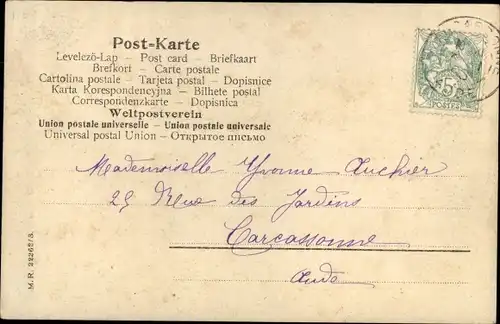 Post-Karte
Levelezö-Lap — Post card — Briefkaart
Brefkort — Carte postale
Cartolina postale — Tarjeta postal — Dopisnice
Karta Korespondencyjna — Bilhete postal
Correspondenzkarte — Dopisnica
Weltpostverein
Union postale universelle — Union postale universale
Universal postal Union — Открытое письмо
5
POSTES
Mademoiselle Yvonne Auchier
25 Rue des Jardins
Carcassonne
Aude